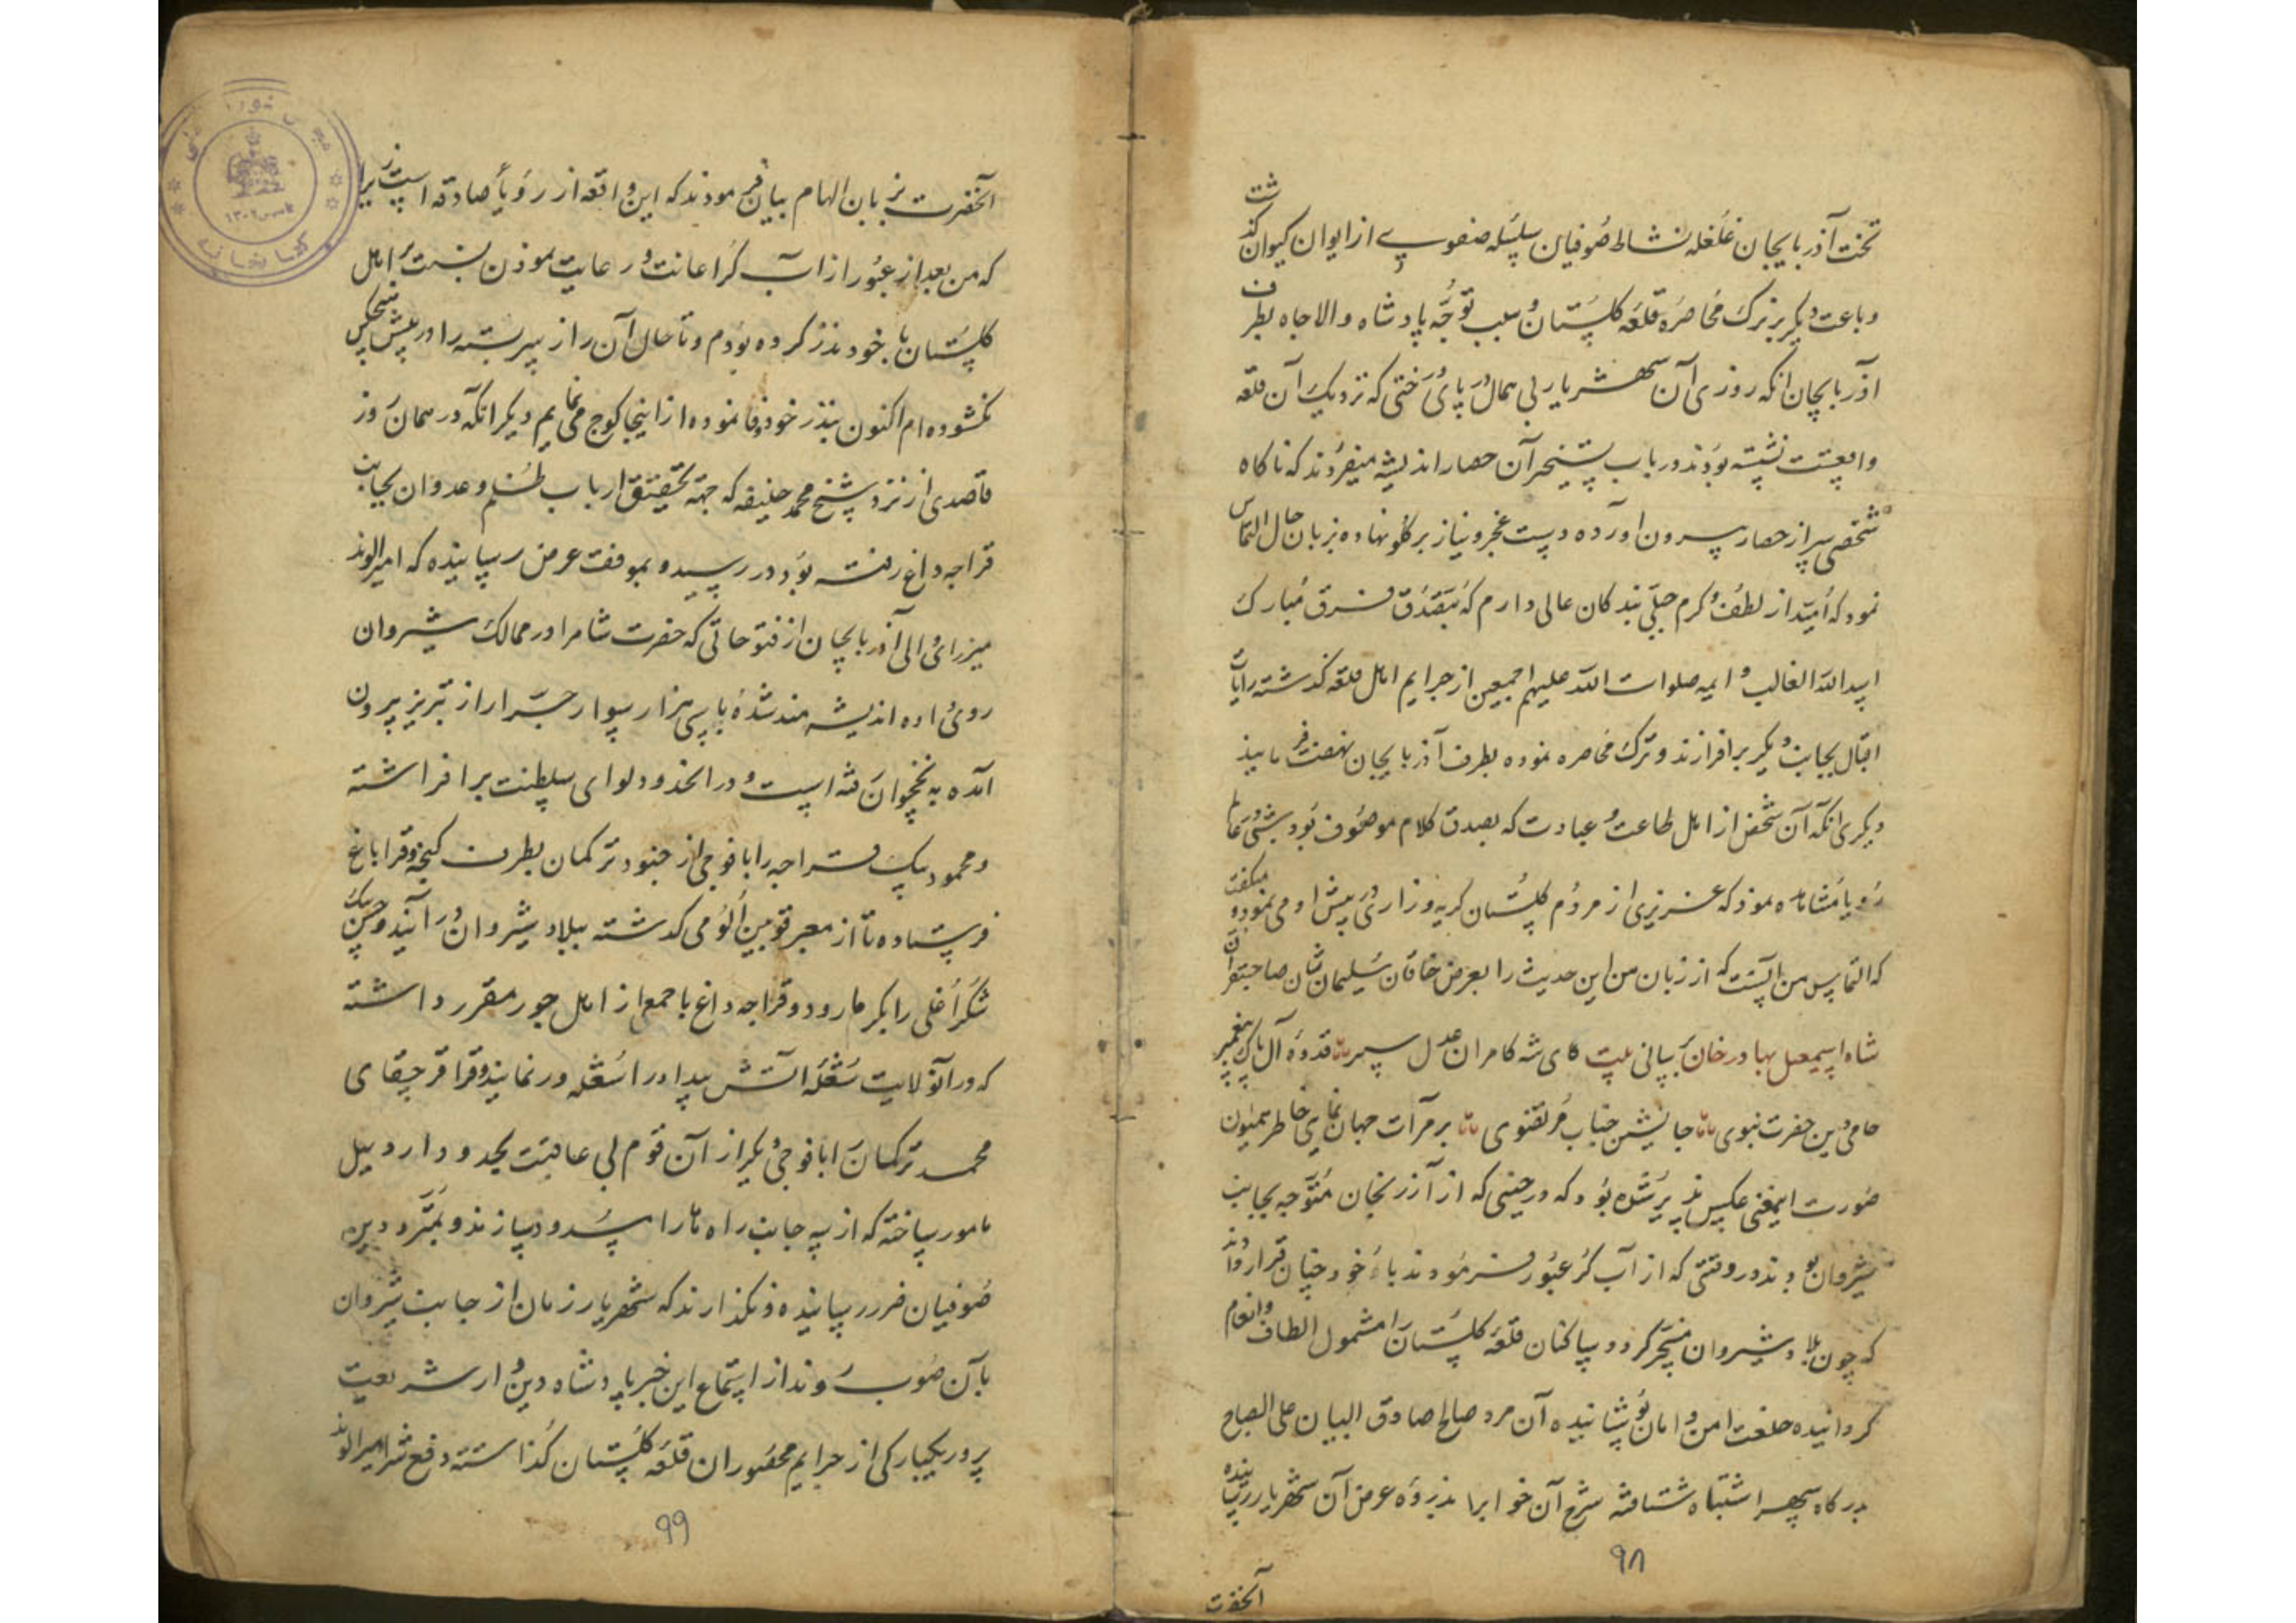 تخت آذربایجان غلغله نشاط صوفیان سلسله صفوی از ایوان کیوان گذشت
و باعث دیگر بر ترک محاصره قلعه گلستان و سبب توجه پادشاه والا جاه بطرف
آذربایجان انکه روزی آن شهریار بی همال در پای درختی که نزدیک آن قلعه
واقعست نشسته بودند در باب تسخیر آن حصار اندیشه میفرمودند که ناکاه
شخصی سر از حصار بیرون آورده دست عجز و نیاز بر کلو نهاده بزبان حال التماس
نمود که امید از لطف و کرم جبلی بندکان عالی دارم که بتصدق فرق مبارک
اسد الله الغالب و ایمه صلوات الله علیهم اجمعین از جرایم اهل قلعه کذشته رایات
اقبال بجانب دیگر برافرازند و ترک محاصره نموده بطرف آذربایجان نهضت فرمایند
دیکری انکه آن شخص از اهل طاعت و عبادت که بصدق کلام موصوف بود شبی در عالم
رویا مشاهده نمود که عزیزی از مردم کلستان کریه و زاری در پیش او می نمود و میکفت
که التماس من آنست که از زبان من این حدیث را بعرض خاقان سلیمان شان صاحبقران
شاه اسمعیل بهادر خان رسانی بیت کای شه کامران عدل سپهر قدوه آل پاک پیغمبر
حامی دین حضرت نبوی جانشین جناب مرتضوی بر مرآت جهان نمای خاطر همایون
صورت اینمعنی عکس پذیر شده بود که در حینی که از آزرنجان متوجه بجانب
شیروان بودند در وقتی که از آب کر عبور فرمودند با خود چنان قرار دادند
که چون بلاد شیروان مسخر کردد ساکنان قلعه کلستان را مشمول الطاف و انعام
کردانیده خلعت امن و امان پوشانیده آن مرد صالح صادق البیان علی الصباح
بدرکاه سپهر اشتباه شتافته شرح آن خوابرا بذروه عرض آن شهریار رسانیده
۹۸
آنحضرت
آنحضرت بزبان الهام بیان فرمودند که این واقعه از رویأ صادقه است زیرا
که من بعد از عبور از آب کر اعانت و رعایت نمودن نسبت باهل
کلستان با خود نذر کرده بودم و تا حال آن راز سربسته را در پیش هیچکس
نکشوده ام اکنون بنذر خود وفا نموده از اینجا کوچ می نمایم دیکر انکه در همان روز
قاصدی از نزد شیخ محمد خلیفه که جهة تحقیق ارباب ظلم و عدوان بجانب
قراجه داغ رفته بود در رسید و بموقف عرض رسانیده که امیر الوند
میرزای والی آذربایجان از فتوحاتی که حضرت شاهرا در ممالک شیروان
روی داده اندیشه مند شده با سی هزار سوار جرار از تبریز بیرون
آمده به نخجوان رفته است و در انحدود لوای سلطنت برافراشته
و محمود بیک قراجه را با فوجی از جنود ترکمان بطرف کنجه و قراباغ
فرستاده تا از معبر قوین الومی کذشته ببلاد شیروان درآیند و حسن بیک
شکراغلی را بکرمارود و قراجه داغ با جمعی از اهل جور مقرر داشته
که در آنولایت شعله آتش بیداد را شعله ور نمایند و قراقرجقای
محمد ترکمان را با فوجی دیگر از آن قوم بی عاقبت بحدود اردبیل
مامور ساخته که از سه جانب راه ها را مسدود سازند و بمتردد دین
صوفیان ضرر رسانیده و نکذارند که شهریار زمان از جانب شیروان
بآن صوب روند از استماع این خبر پادشاه دین دار شریعت
پرور یکبارکی از جرایم محصوران قلعه کلستان کذاشته دفع شر امیر الوند
۹۹
کتابخانه